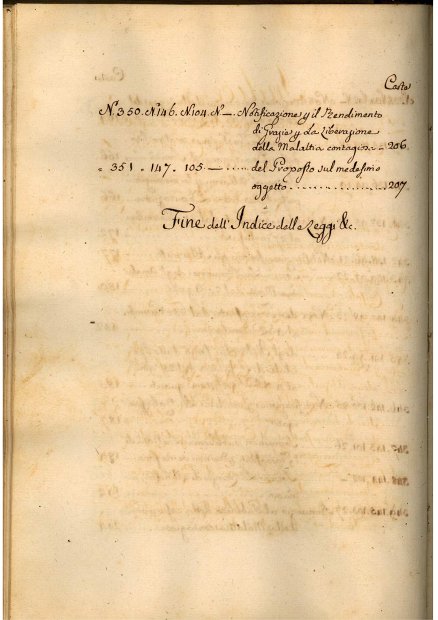 Carta
N. 350. N. 146. N. 104. N — Notificazione p il Rendimento
di Grazie p la Liberazione
della Malattia contagiosa .. 206.
" 351 - 147 - 105 — ..... del Proposto sul medesimo
oggetto .................. 207.
Fine dell'Indice delle Leggi &c.